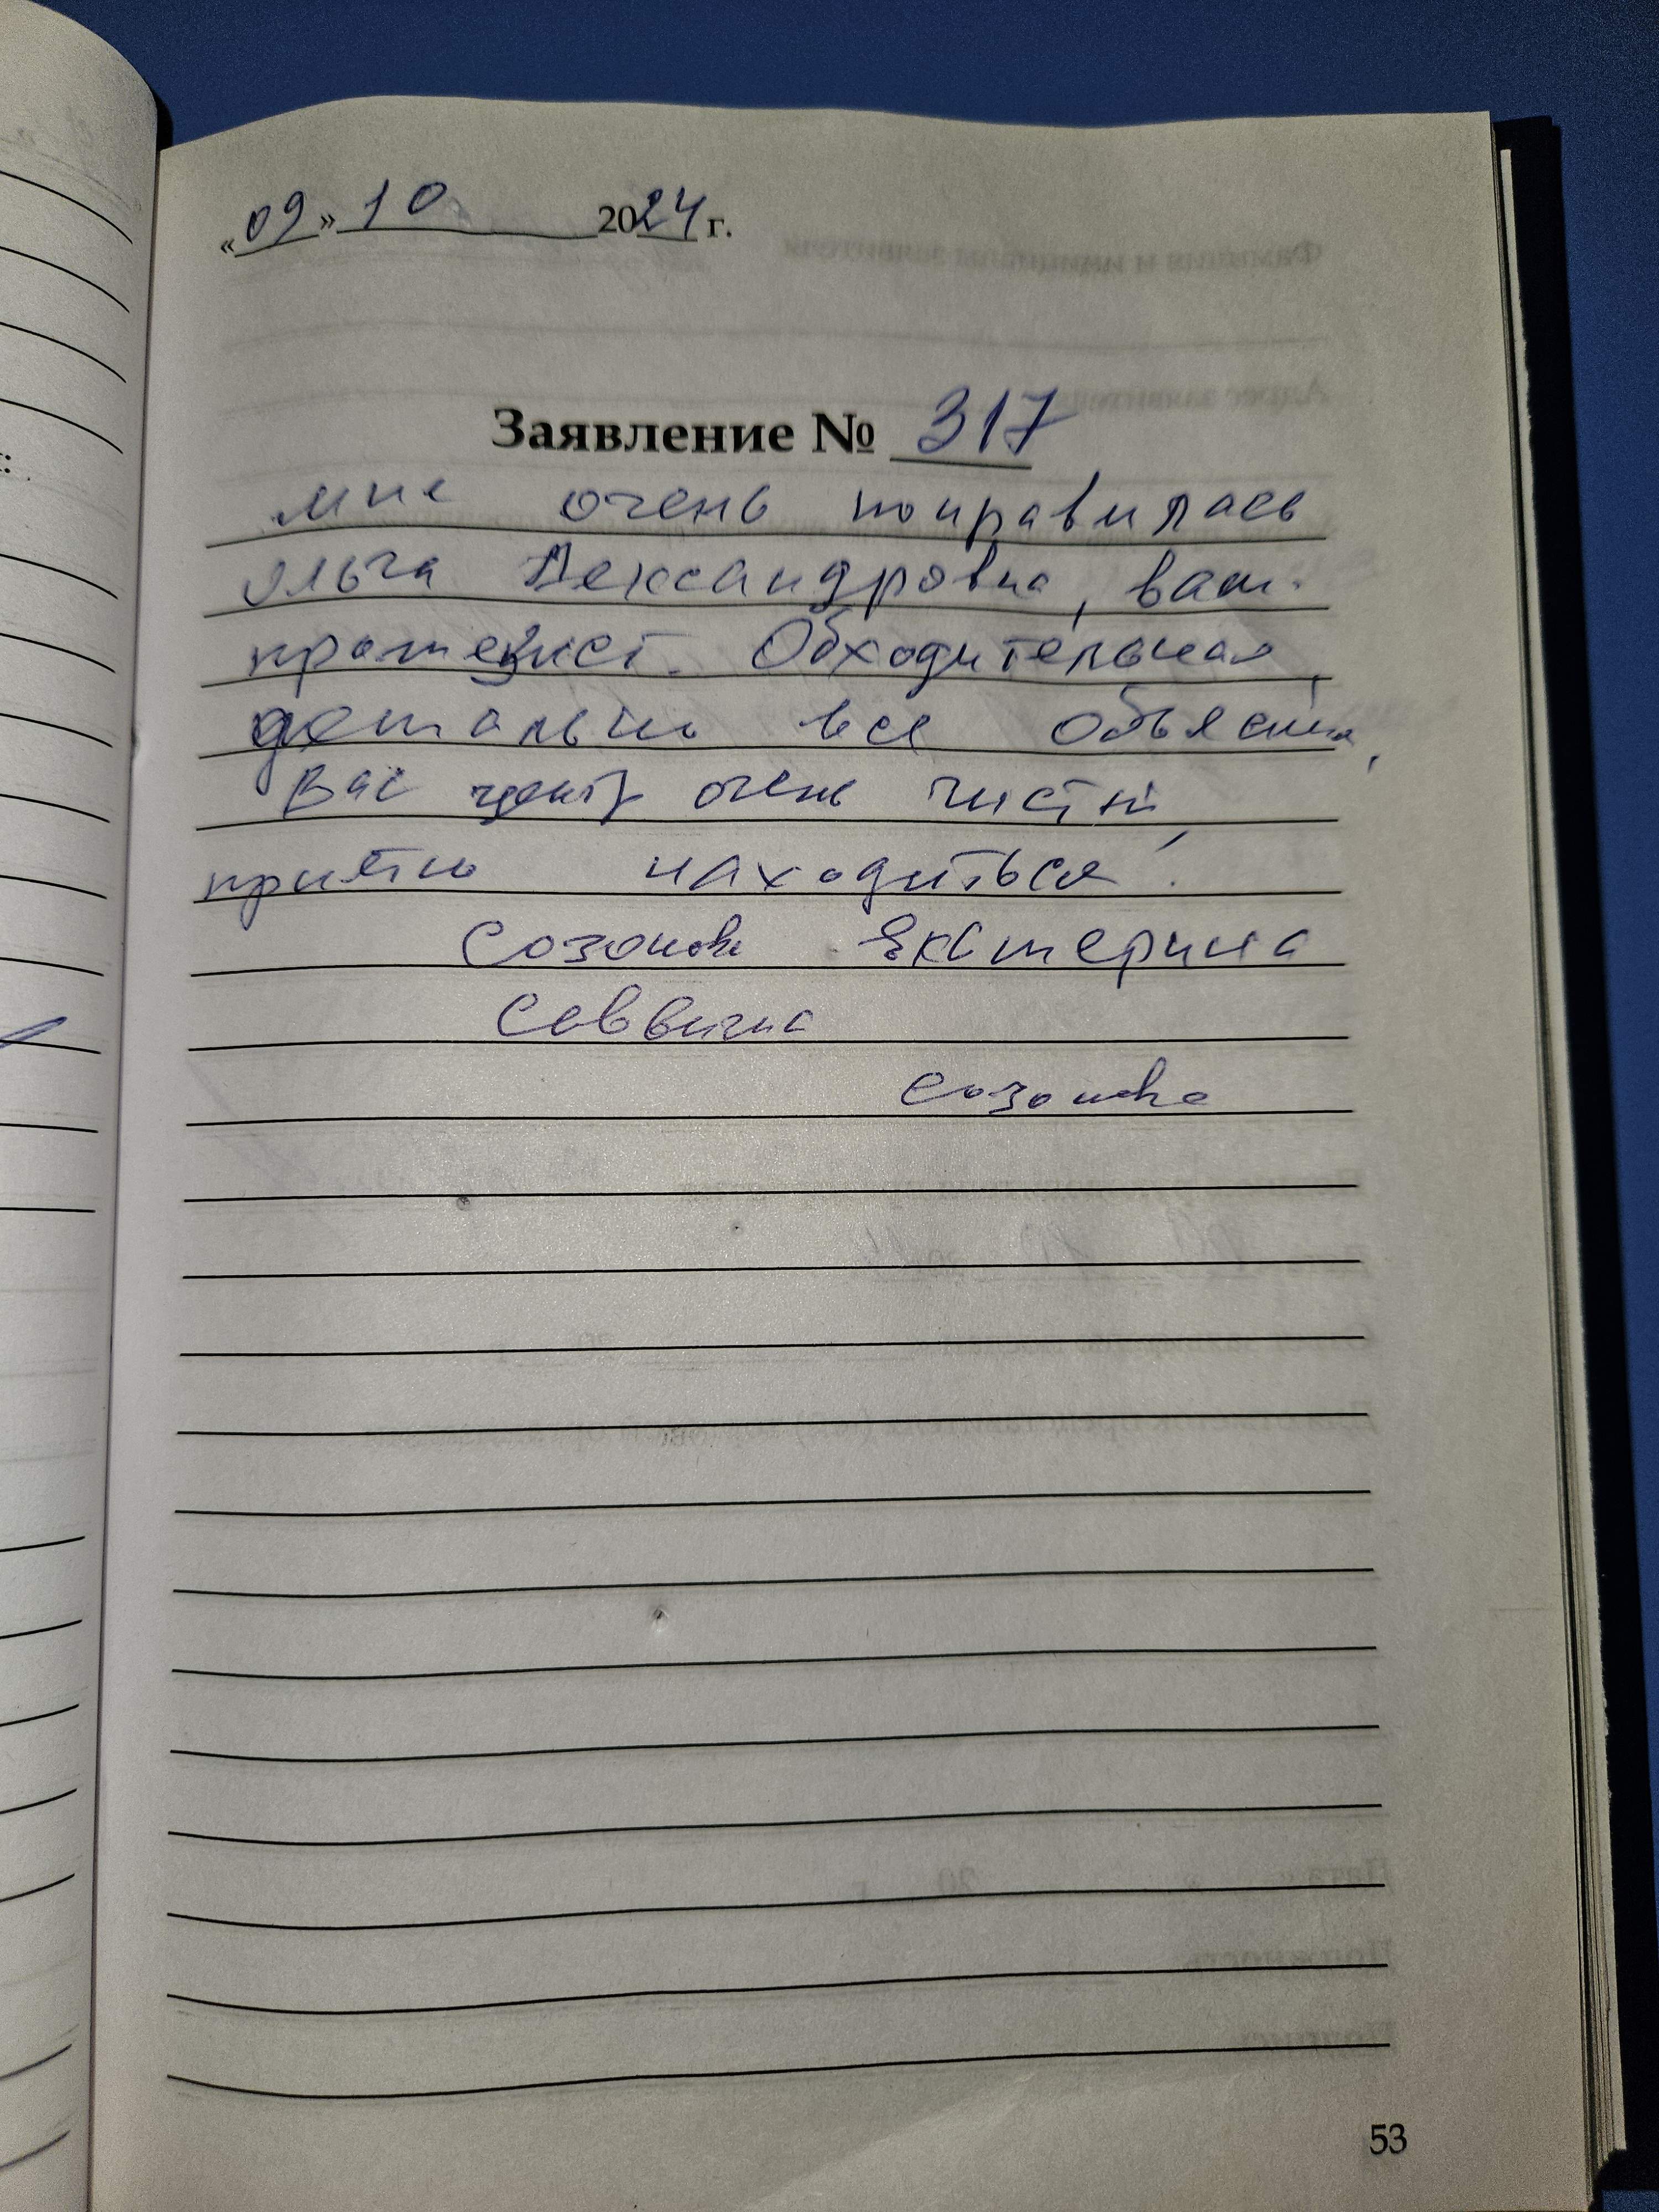 «09» 10 2024 г.
Заявление № 317
мне очень понравилась
Ольга Александровна, ваш
протезист. Обходительная,
детально все объясняла,
Вас центр очень чистый,
приятно находиться!
Созонова Екатерина
Саввична
Созонова
53